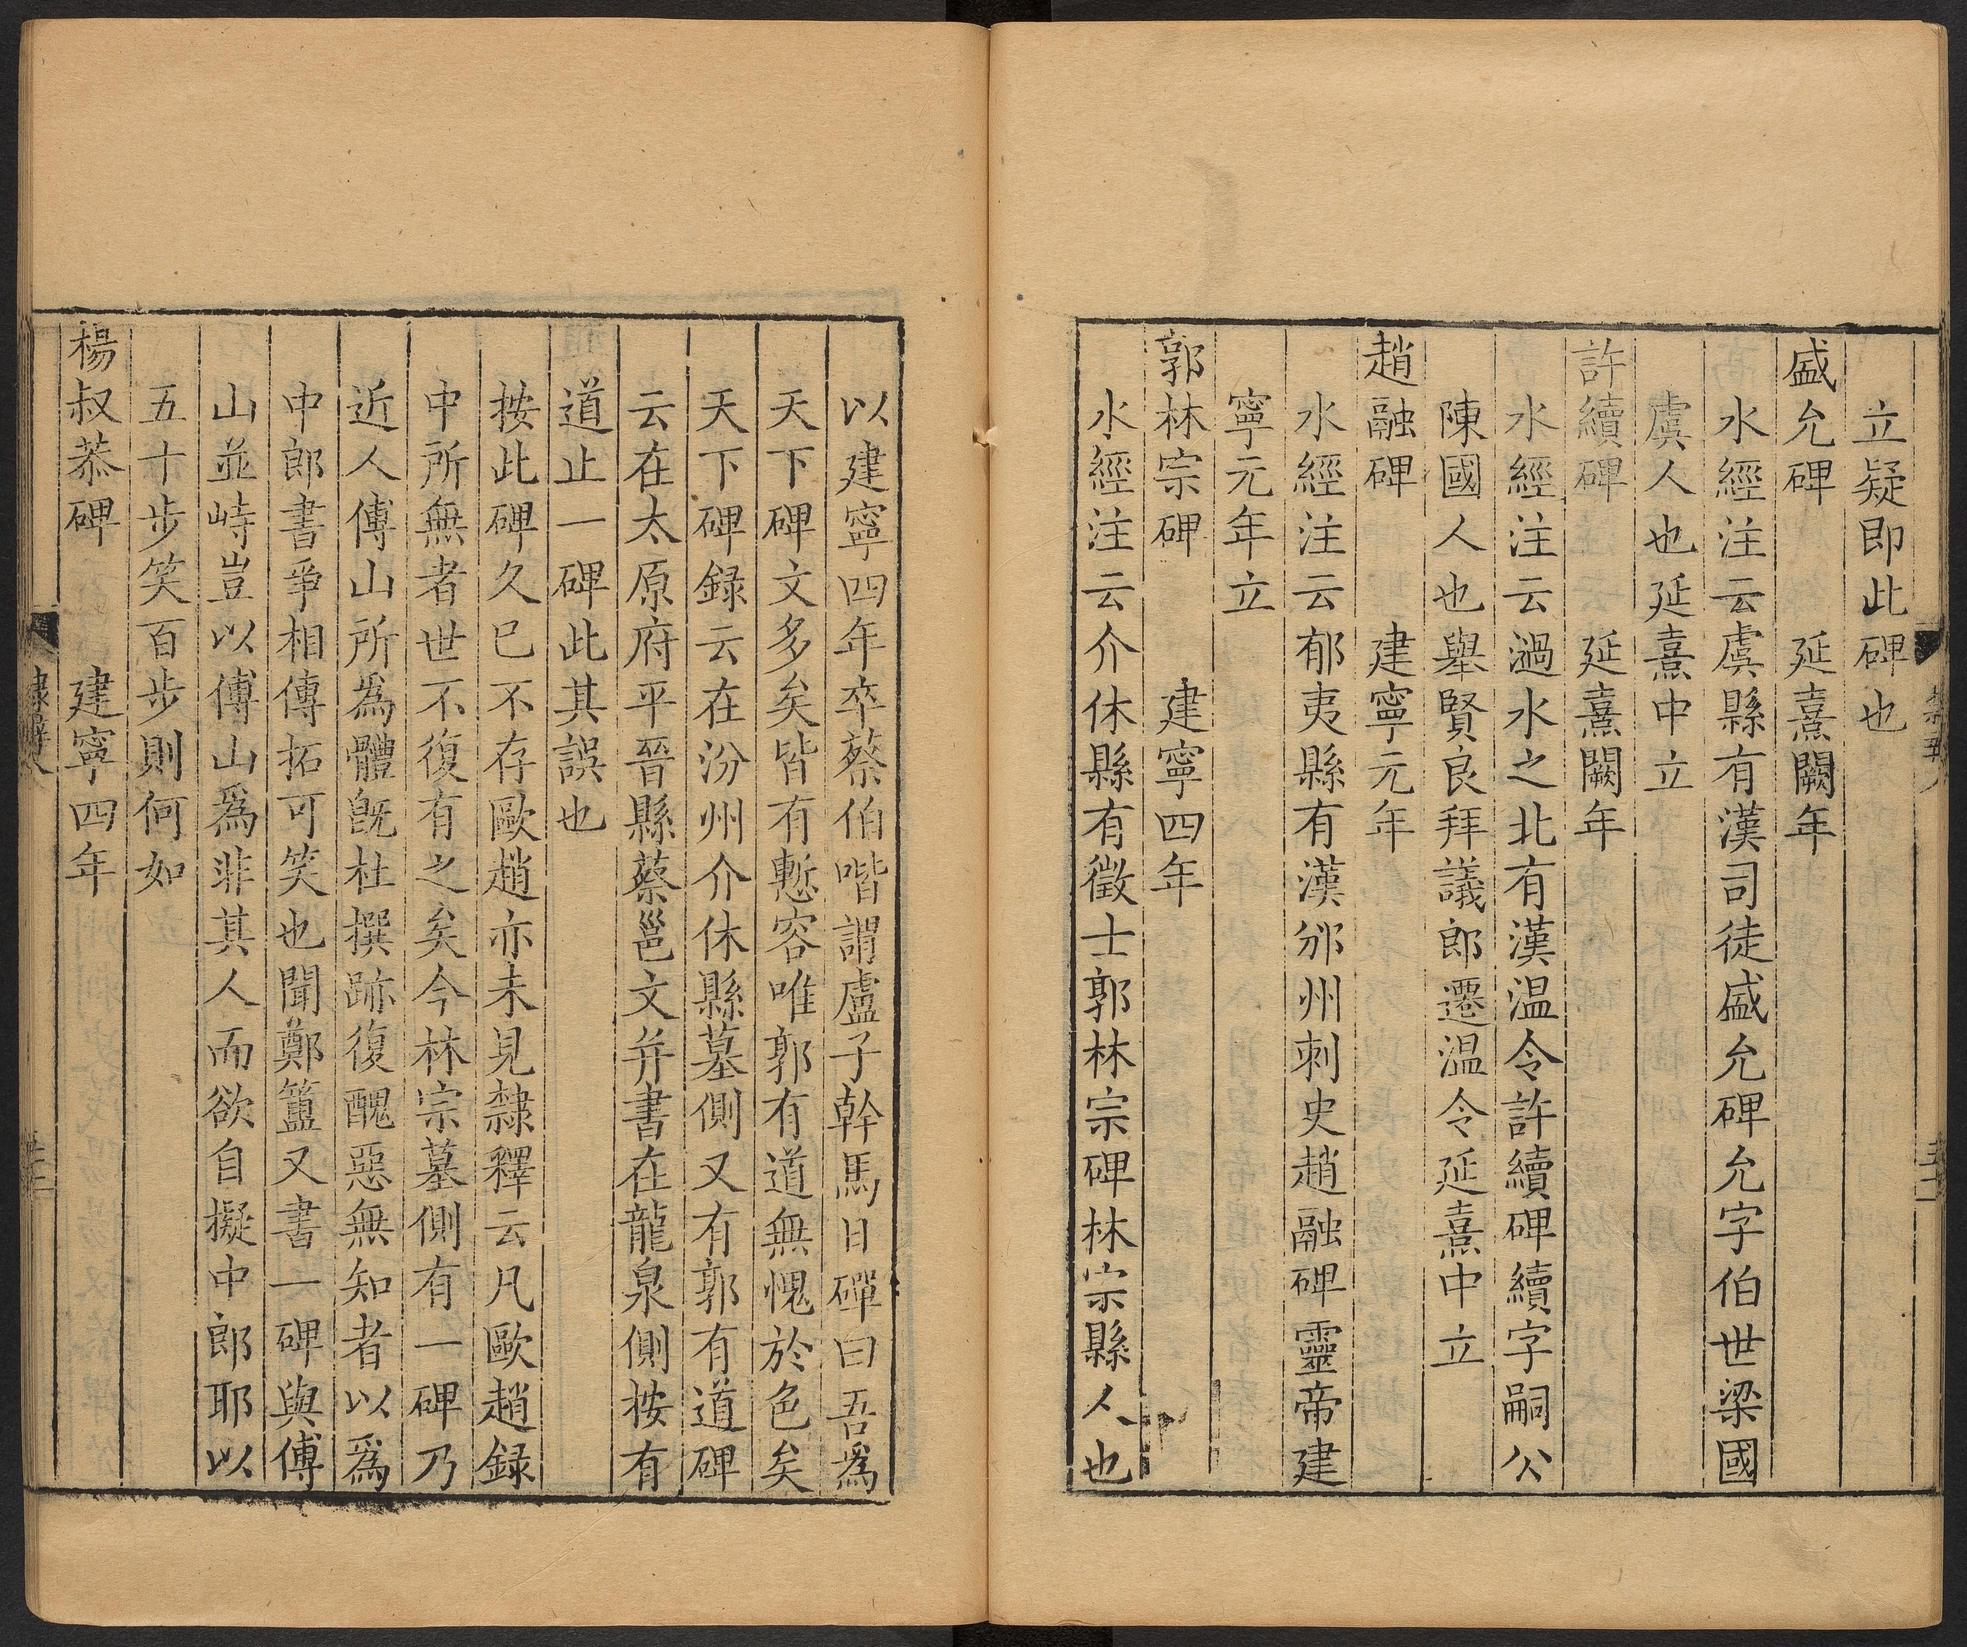 立疑即此碑也
盛允碑 延熹闕年
水經注云虞縣有漢司徒盛允碑允字伯世梁國
虞人也延熹中立
許續碑 延熹闕年
水經注云濄水之北有漢温令許續碑續字嗣公
陳國人也舉賢良拜議郎遷温令延熹中立
趙融碑 建寧元年
水經注云郁夷縣有漢邠州刺史趙融碑靈帝建
寧元年立
郭林宗碑 建寧四年
水經注云介休縣有徵士郭林宗碑林宗縣人也
以建寧四年卒蔡伯喈謂盧子幹馬日磾曰吾爲
天下碑文多矣皆有慙容唯郭有道無愧於色矣
天下碑録云在汾州介休縣墓側又有郭有道碑
云在太原府平晉縣蔡邕文并書在龍泉側按有
道止一碑此其誤也
按此碑久已不存歐趙亦未見隸釋云凡歐趙録
中所無者世不復有之矣今林宗墓側有一碑乃
近人傅山所爲體旣杜撰跡復醜惡無知者以爲
中郎書爭相傳拓可笑也聞鄭簠又書一碑與傅
山並峙豈以傅山爲非其人而欲自擬中郎耶以
五十步笑百步則何如
楊叔恭碑 建寧四年